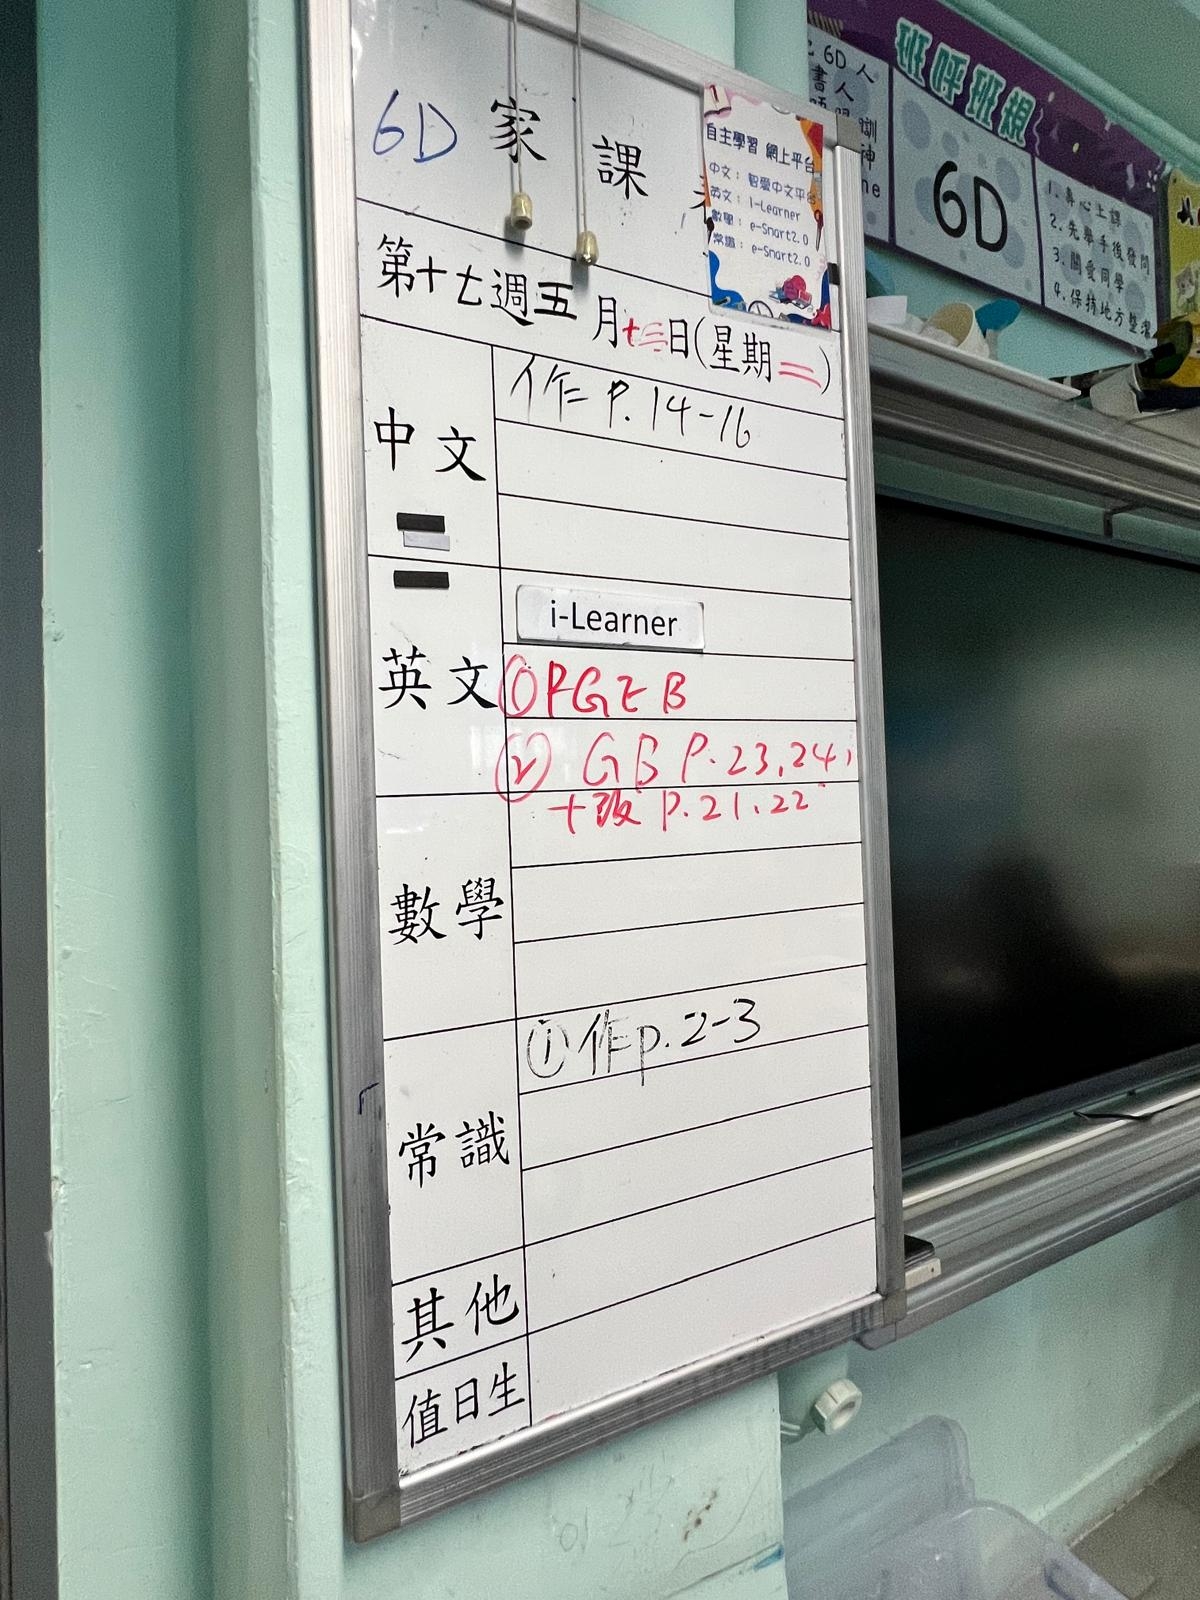 6D 家 課
自主學習 網上平台
中文：智愛中文平台
英文：i-Learner
數學：e-Smart2.0
常識：e-Smart2.0
第十七週五月十三日(星期二)
中文
作 P.14-16
英文
i-Learner
① PGEB
② GB P.23,24,
+改 P.21,22
數學
常識
① 作p.2-3
其他
值日生
班呼班規
6D人
書人
6D
1. 專心上課
2. 先舉手後發問
3. 關愛同學
4. 保持地方整潔